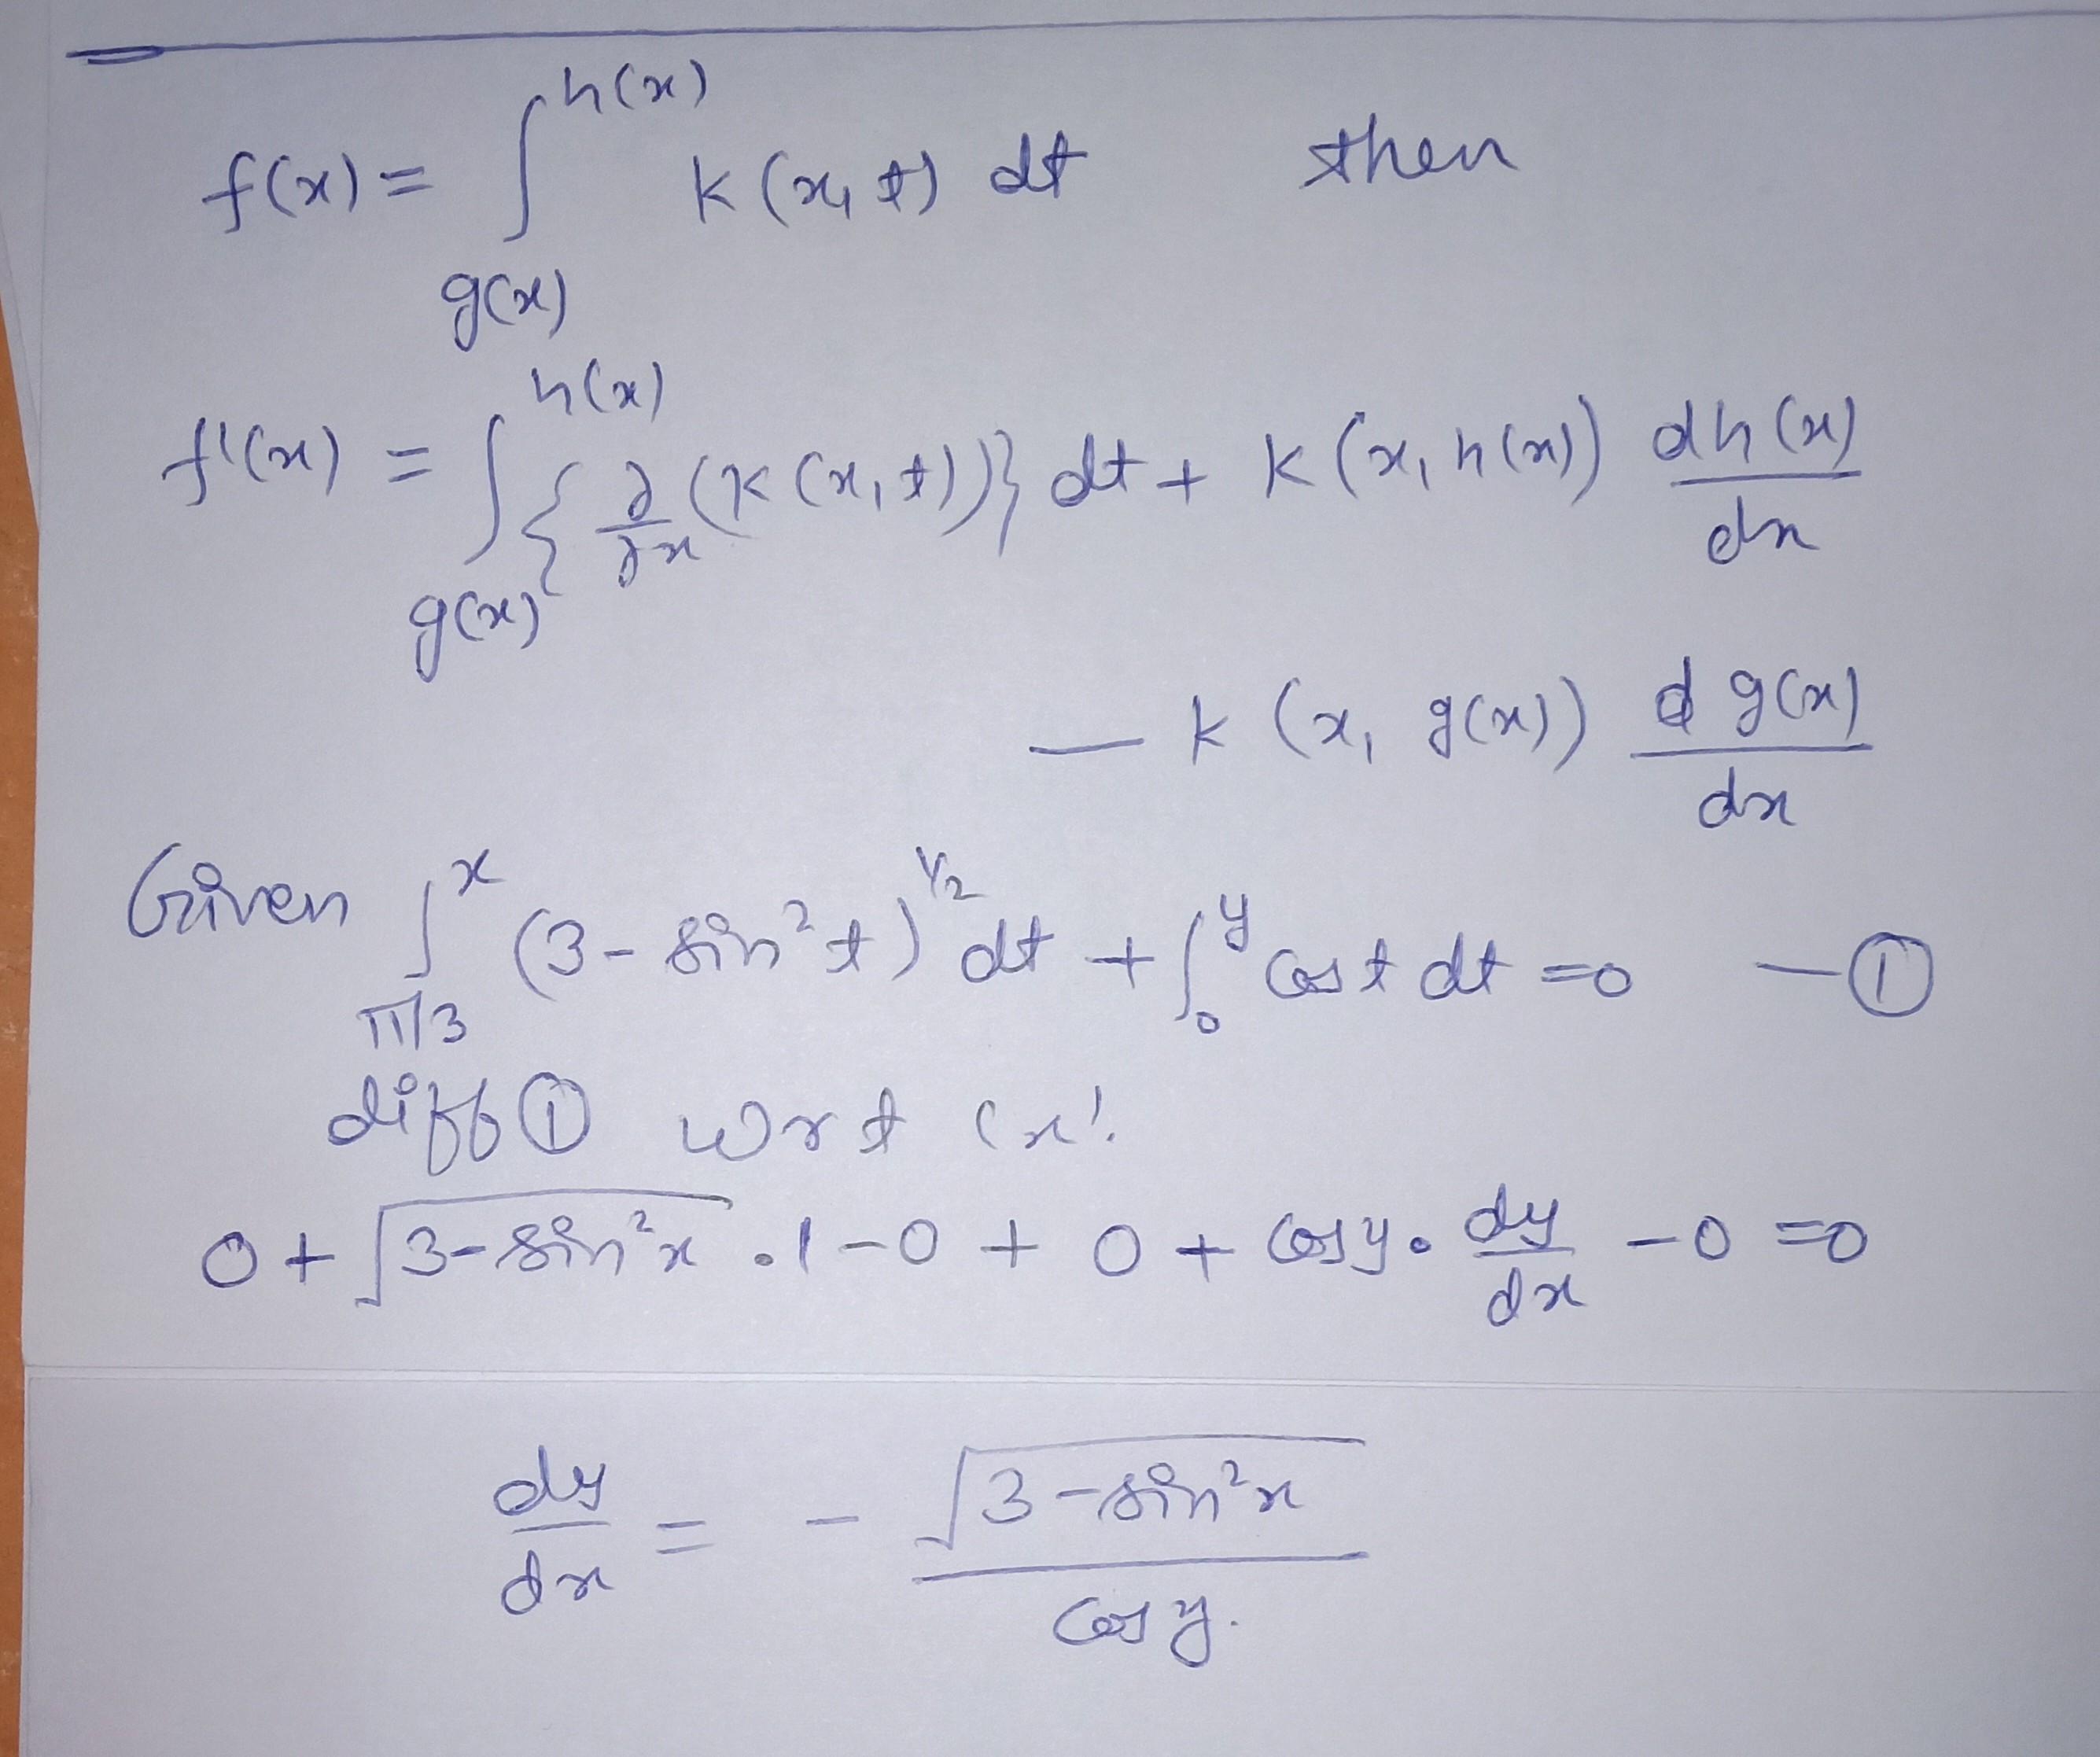 f(x) = ∫_{g(x)}^{h(x)} K(x, t) dt then
f'(x) = ∫_{g(x)}^{h(x)} { ∂/∂x (K(x, t)) } dt + K(x, h(x)) dh(x)/dx
— K(x, g(x)) d g(x)/dx
Given ∫_{π/3}^{x} (3 - sin²t)^{1/2} dt + ∫_0^y cos t dt = 0 — ①
diff ① wrt 'x'.
0 + √(3 - sin²x) · 1 - 0 + 0 + cos y · dy/dx - 0 = 0
dy/dx = - √(3 - sin²x) / cos y.